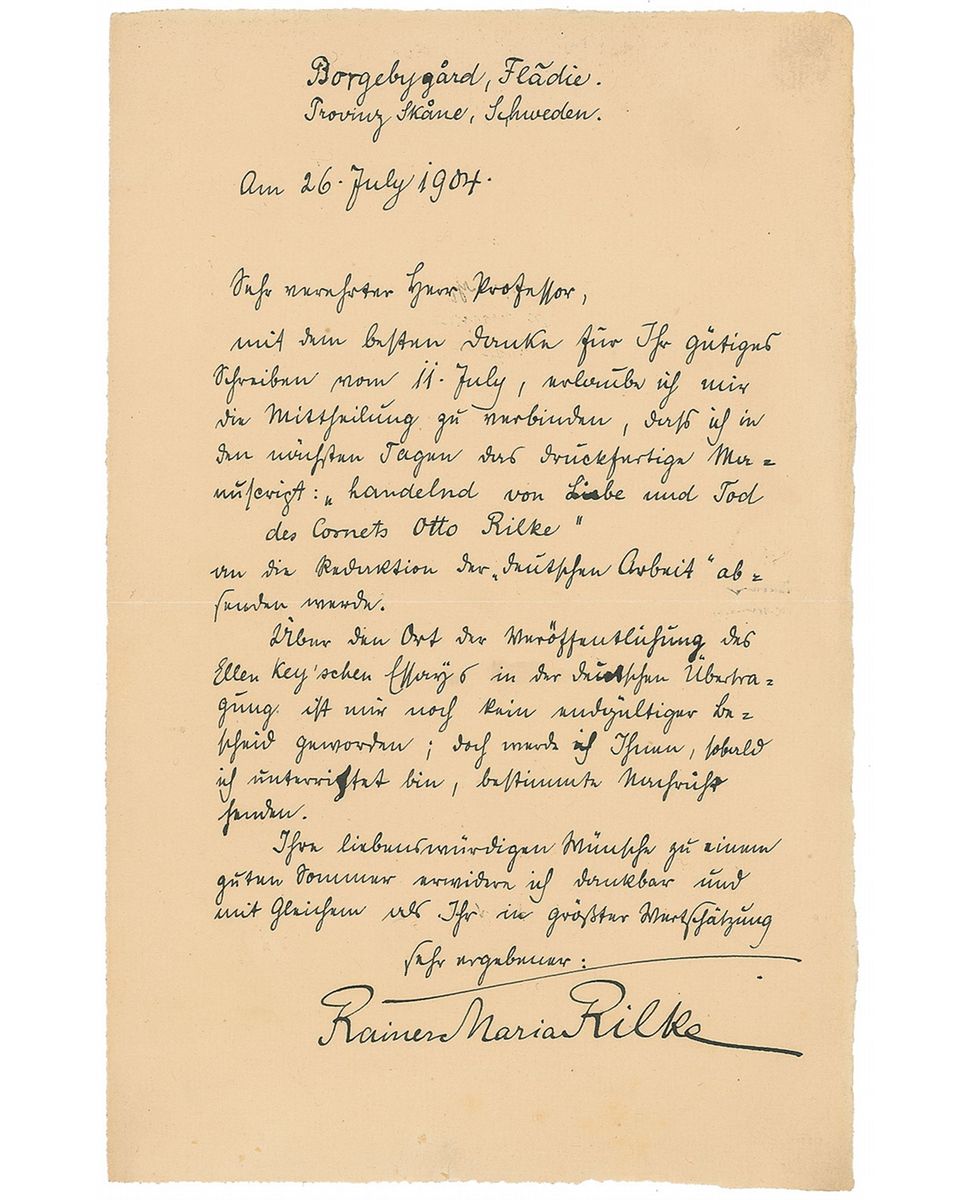 Borgebygård, Flädie.
Provinz Skåne, Schweden.
Am 26. July 1904.
Sehr verehrter Herr Professor,
mit dem besten Danke für Ihr gütiges
Schreiben vom 11. July, erlaube ich mir
die Mittheilung zu verbinden, dass ich in
den nächsten Tagen das druckfertige Ma=
nuscript: „handelnd von Liebe und Tod
des Cornets Otto Rilke"
an die Redaktion der „deutschen Arbeit" ab=
senden werde.
Über den Ort der Veröffentlichung des
Ellen Key'schen Essays in der deutschen Übertra=
gung ist mir noch kein endgültiger Be=
scheid geworden; doch werde ich Ihnen, sobald
ich unterrichtet bin, bestimmte Nachricht
senden.
Ihre liebenswürdigen Wünsche zu einem
guten Sommer erwidere ich dankbar und
mit Gleichem als Ihr in größter Wertschätzung
sehr ergebener:
Rainer Maria Rilke